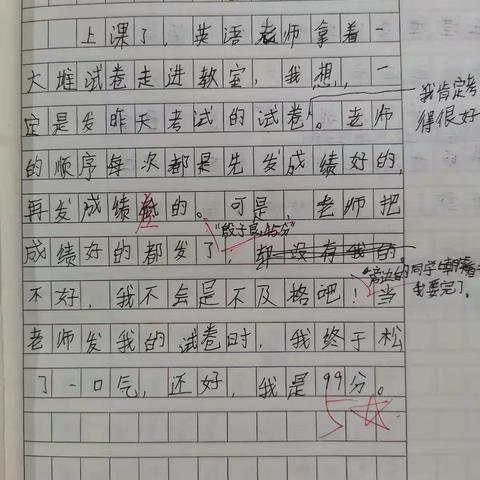 上课了，英语老师拿着一
大堆试卷走进教室，我想，一
定是发昨天考试的试卷。老师
我肯定考
得很好
的顺序每次都是先发成绩好的，
再发成绩低的。可是，老师把
成绩好的都发了，却没有我的。
"旁边的同学
我要完了。
不好，我不会是不及格吧！当
老师发我的试卷时，我终于松
了一口气，还好，我是99分。
5